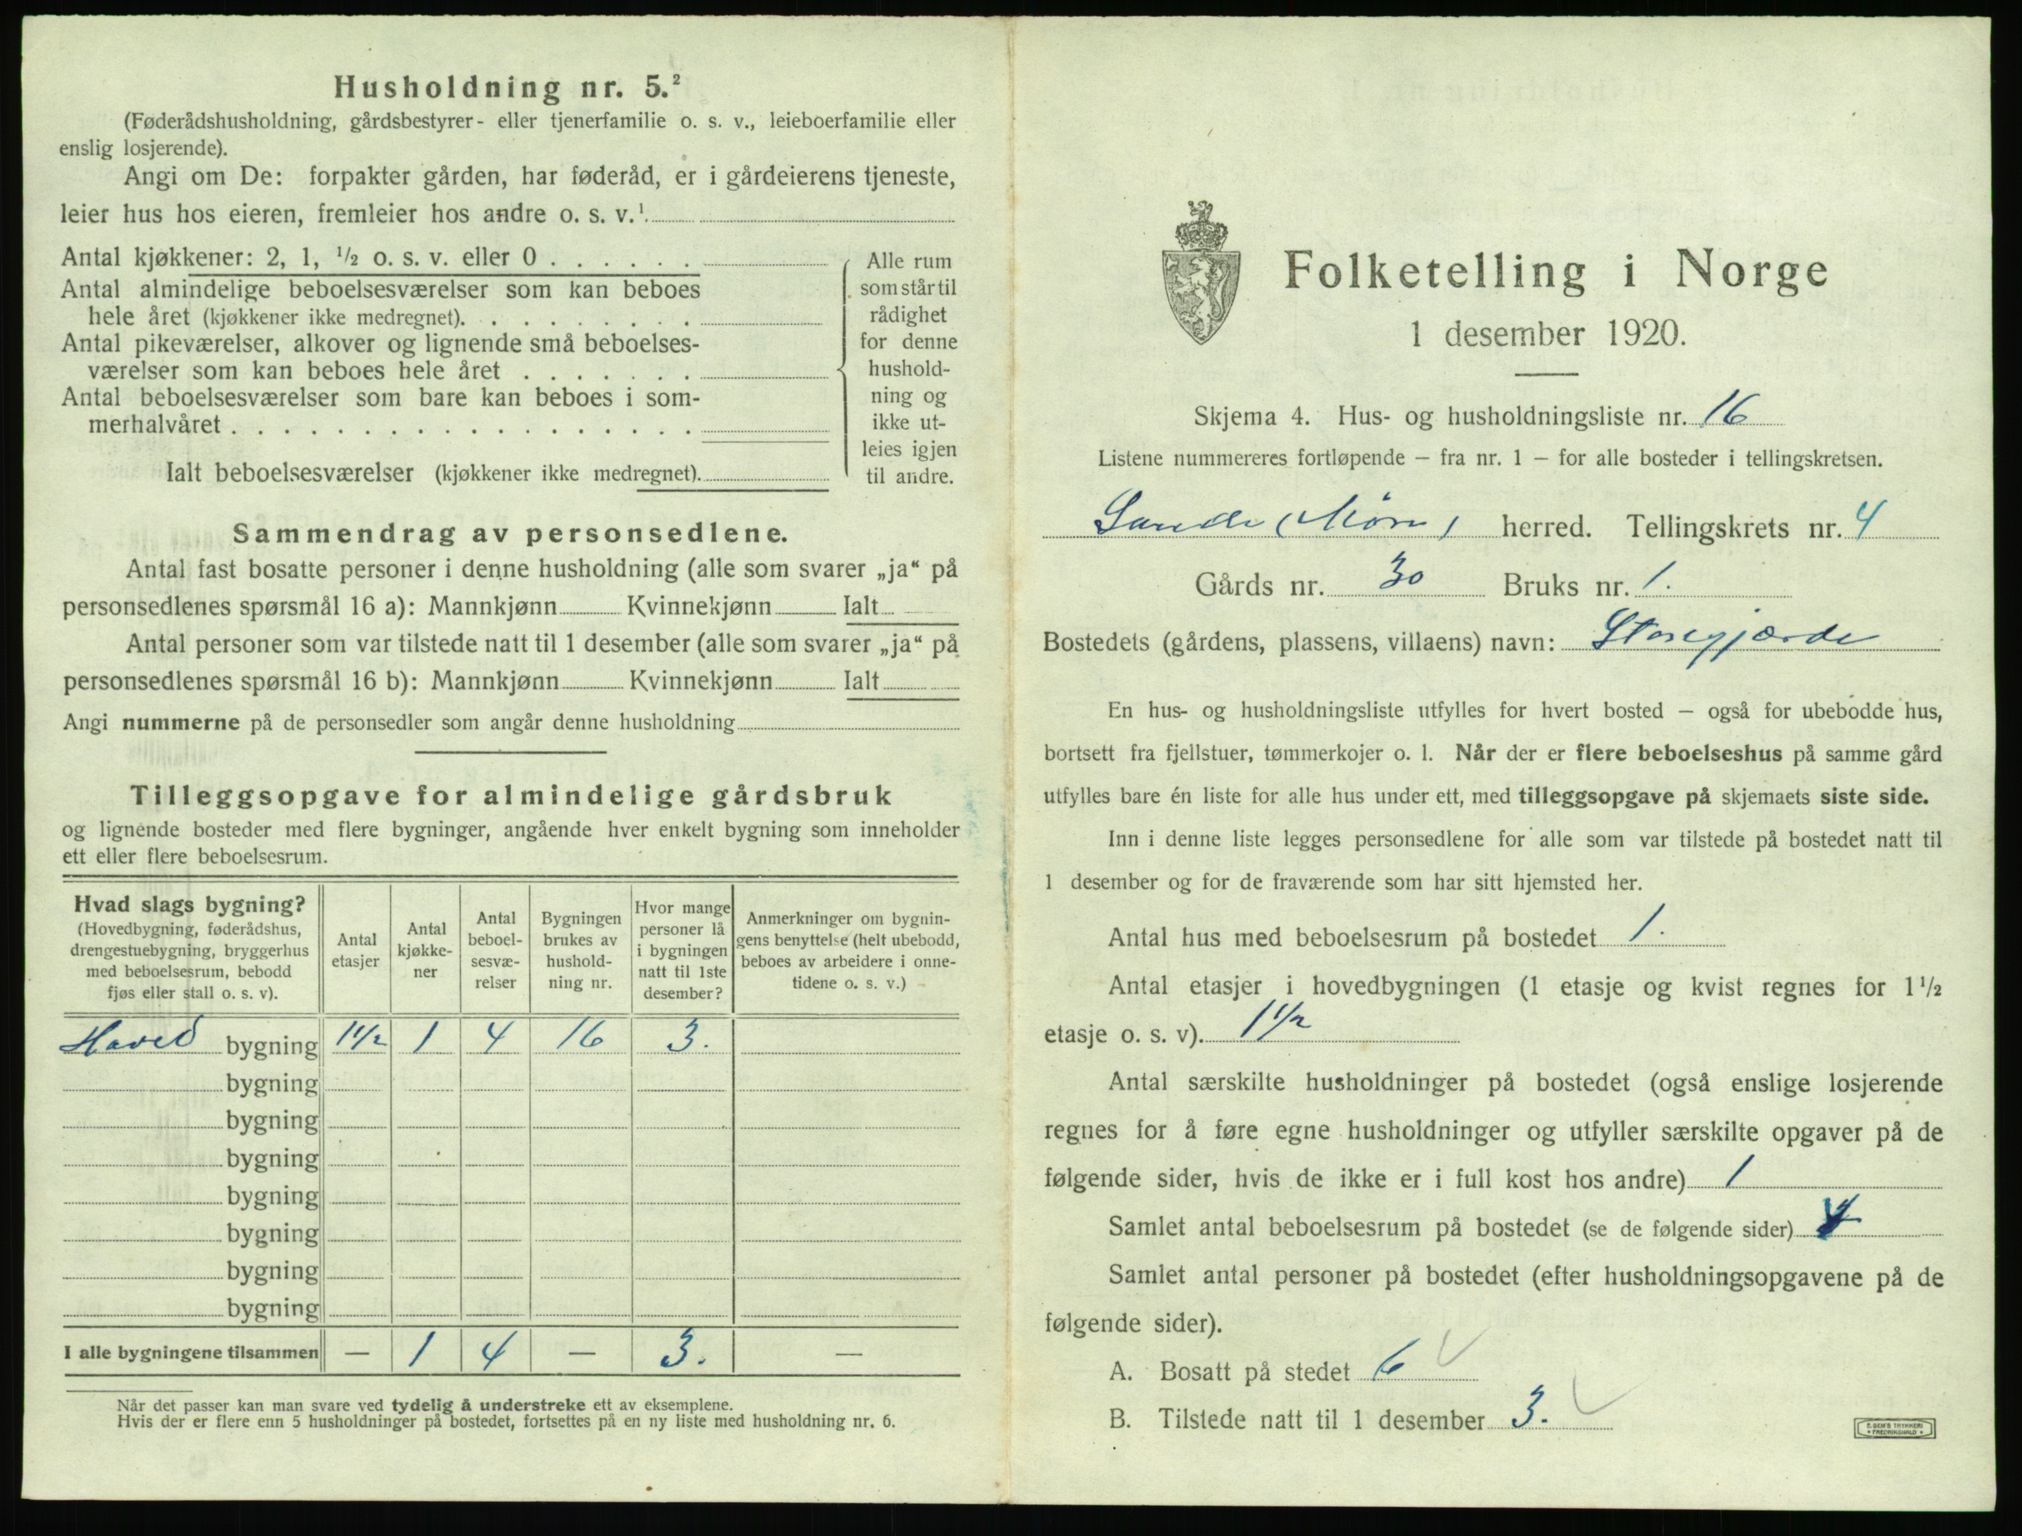 Husholdning nr. 5.²
(Føderådshusholdning, gårdsbestyrer- eller tjenerfamilie o. s. v., leieboerfamilie eller
enslig losjerende).
Angi om De: forpakter gården, har føderåd, er i gårdeierens tjeneste,
leier hus hos eieren, fremleier hos andre o. s. v.¹
Antal kjøkkener: 2, 1, ½ o. s. v. eller 0 . . . . . .
Antal almindelige beboelsesværelser som kan beboes
hele året (kjøkkener ikke medregnet). . . . . . . . .
Antal pikeværelser, alkover og lignende små beboelses-
værelser som kan beboes hele året . . . . . . .
Antal beboelsesværelser som bare kan beboes i som-
merhalvåret . . . . . . . . . . . . . . . . . .
Ialt beboelsesværelser (kjøkkener ikke medregnet).
Alle rum
som står til
rådighet
for denne
hushold-
ning og
ikke ut-
leies igjen
til andre.
Sammendrag av personsedlene.
Antal fast bosatte personer i denne husholdning (alle som svarer „ja“ på
personsedlenes spørsmål 16 a): Mannkjønn Kvinnekjønn Ialt
Antal personer som var tilstede natt til 1 desember (alle som svarer „ja“ på
personsedlenes spørsmål 16 b): Mannkjønn Kvinnekjønn Ialt
Angi nummerne på de personsedler som angår denne husholdning
Tilleggsopgave for almindelige gårdsbruk
og lignende bosteder med flere bygninger, angående hver enkelt bygning som inneholder
ett eller flere beboelsesrum.
Hvad slags bygning?
(Hovedbygning, føderådshus,
drengestuebygning, bryggerhus
med beboelsesrum, bebodd
fjøs eller stall o. s. v).
Antal
etasjer
Antal
kjøkke-
ner
Antal
beboel-
sesvæ-
relser
Bygningen
brukes av
hushold-
ning nr.
Hvor mange
personer lå
i bygningen
natt til 1ste
desember?
Anmerkninger om bygnin-
gens benyttelse (helt ubebodd,
beboes av arbeidere i onne-
tidene o. s. v.)
Hoved bygning 1½ 1 4 16 3.
bygning
bygning
bygning
bygning
bygning
bygning
bygning
I alle bygningene tilsammen — 1 4 — 3. —
Når det passer kan man svare ved tydelig å understreke ett av eksemplene.
Hvis der er flere enn 5 husholdninger på bostedet, fortsettes på en ny liste med husholdning nr. 6.
Folketelling i Norge
1 desember 1920.
Skjema 4. Hus- og husholdningsliste nr. 16
Listene nummereres fortløpende — fra nr. 1 — for alle bosteder i tellingskretsen.
Sande (Møre) herred. Tellingskrets nr. 4
Gårds nr. 30 Bruks nr. 1.
Bostedets (gårdens, plassens, villaens) navn: Storegjærde
En hus- og husholdningsliste utfylles for hvert bosted — også for ubebodde hus,
bortsett fra fjellstuer, tømmerkojer o. l. Når der er flere beboelseshus på samme gård
utfylles bare én liste for alle hus under ett, med tilleggsopgave på skjemaets siste side.
Inn i denne liste legges personsedlene for alle som var tilstede på bostedet natt til
1 desember og for de fraværende som har sitt hjemsted her.
Antal hus med beboelsesrum på bostedet 1.
Antal etasjer i hovedbygningen (1 etasje og kvist regnes for 1½
etasje o. s. v). 1½
Antal særskilte husholdninger på bostedet (også enslige losjerende
regnes for å føre egne husholdninger og utfyller særskilte opgaver på de
følgende sider, hvis de ikke er i full kost hos andre) 1
Samlet antal beboelsesrum på bostedet (se de følgende sider) 4
Samlet antal personer på bostedet (efter husholdningsopgavene på de
følgende sider).
A. Bosatt på stedet 6
B. Tilstede natt til 1 desember 3.
E. SEM'S TRYKKERI
FREDRIKSHALD